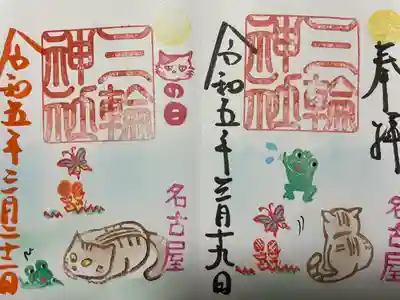 奉拝
三輪
神社
令和五年三月十九日
名古屋
の日
三輪
神社
令和五年三月二十二日
名古屋